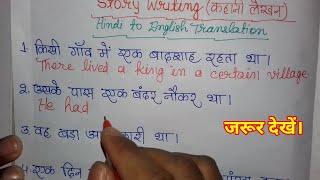 Story Writing (कहानी लेखन)
Hindi to English Translation
1. किसी गाँव में एक बादशाह रहता था।
There lived a king in a certain village
2. उसके पास एक बंदर नौकर था।
He had
3. वह बड़ा
कारी था।
जरूर देखें।
4. एक दिन